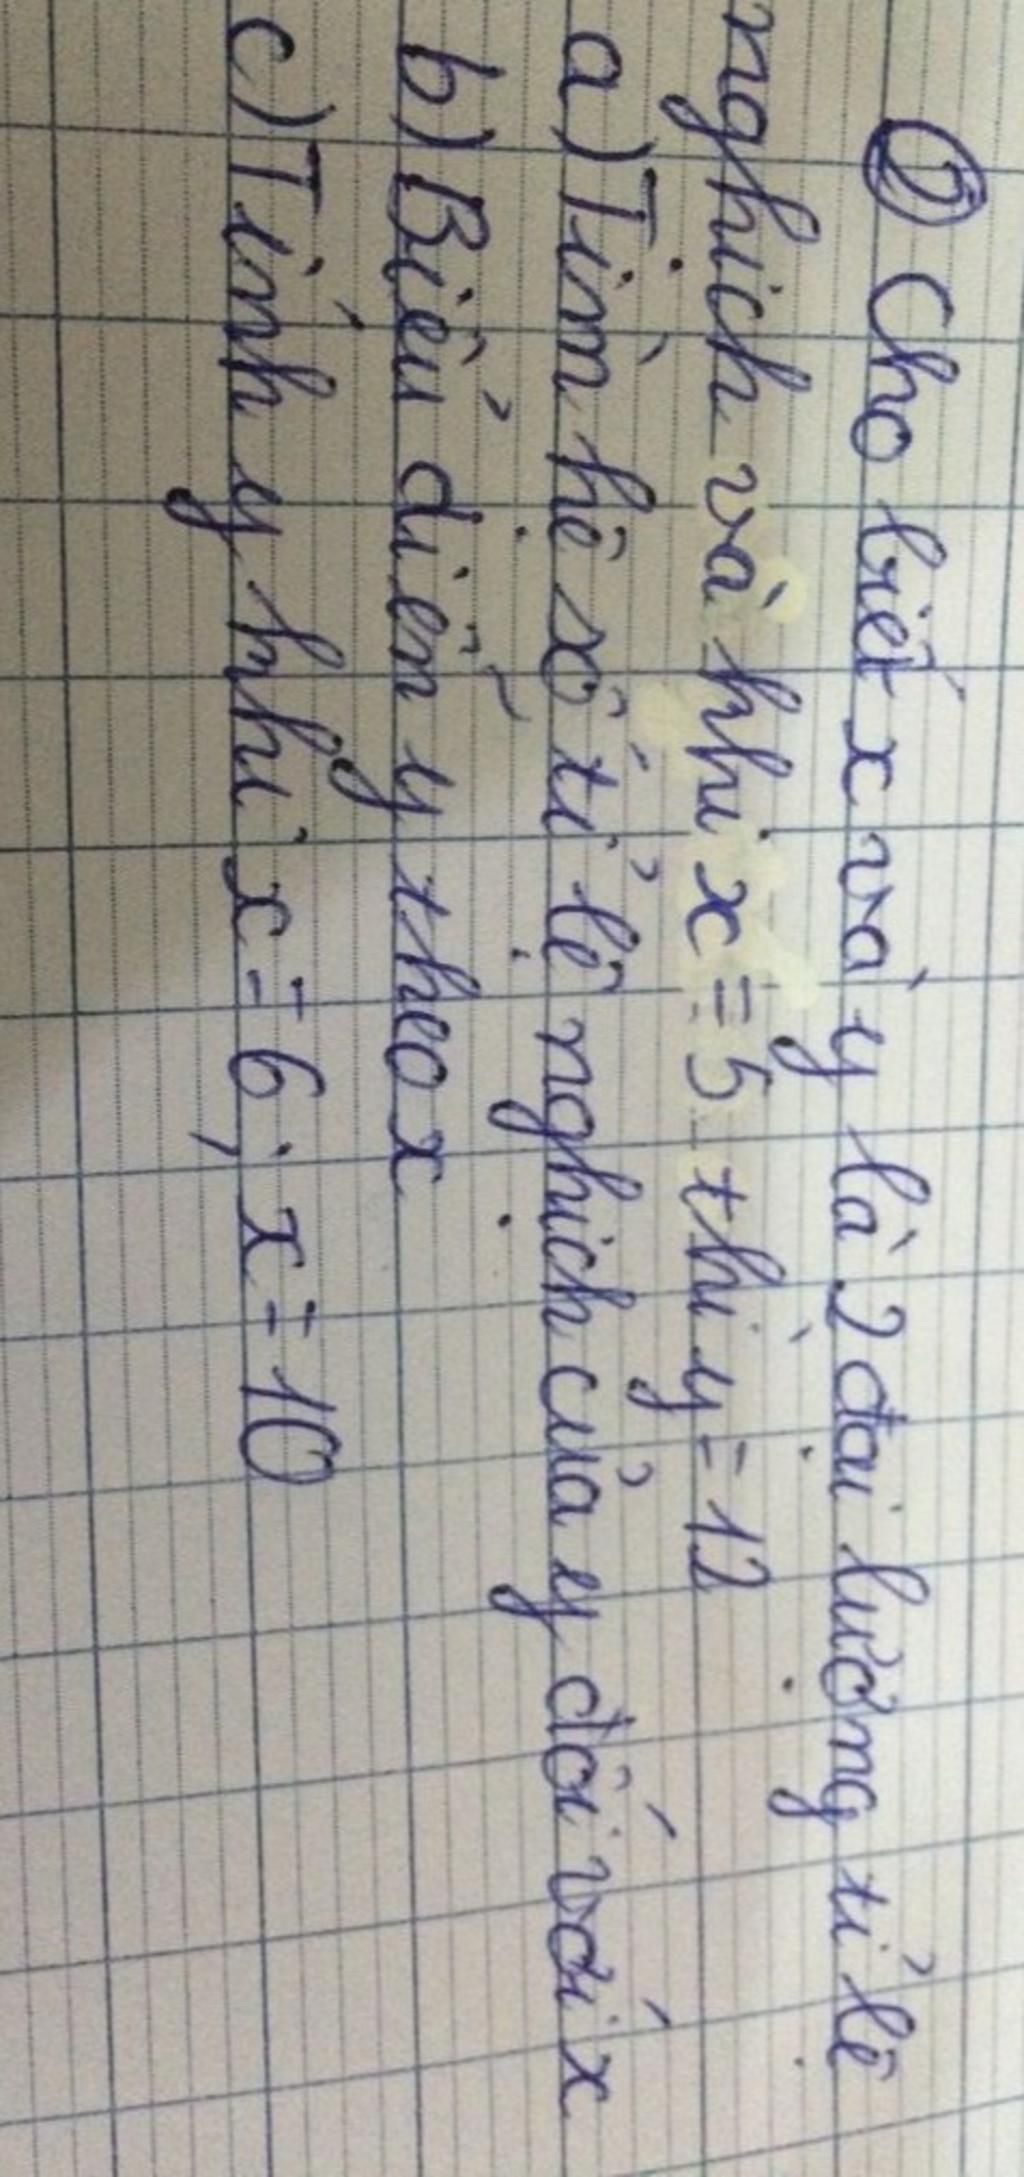 ① Cho biết x và y là 2 đại lượng tỉ lệ
nghịch và khi x = 5 thì y = 12
a) Tìm hệ số tỉ lệ nghịch của y đối với x
b) Biểu diễn y theo x
c) Tính y khi x = 6; x = 10